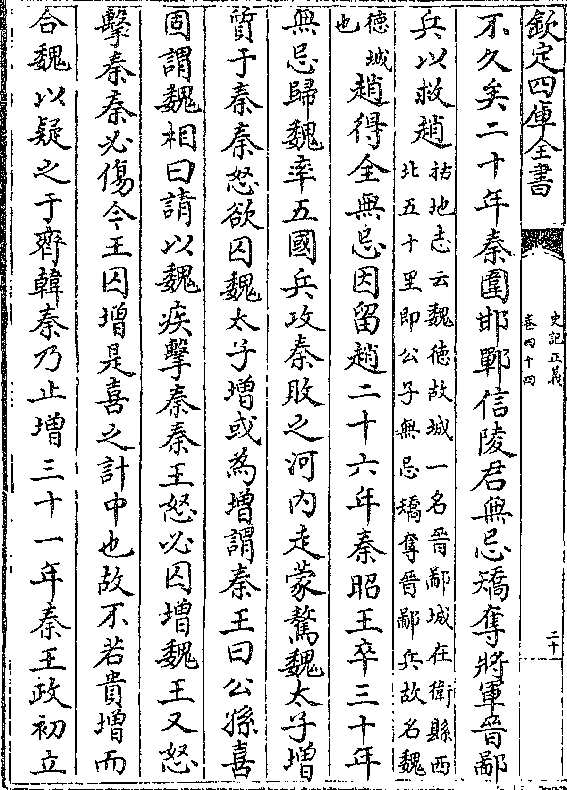 欽定四庫全書
史記正義
卷四十四
二十
不久矣二十年秦圍邯鄲信陵君無忌矯奪將軍晉鄙
兵以救趙
括地志云魏德故城一名晉鄙城在衛縣西
北五十里即公子無忌矯奪晉鄙兵故名魏
德城
也
趙得全無忌因留趙二十六年秦昭王卒三十年
無忌歸魏率五國兵攻秦敗之河内走蒙驁魏太子增
質于秦秦怒欲囚魏太子增或為增謂秦王曰公孫喜
固謂魏相曰請以魏疾擊秦秦王怒必囚增魏王又怒
擊秦秦必傷今王囚增是喜之計中也故不若貴增而
合魏以疑之于齊韓秦乃止增三十一年秦王政初立